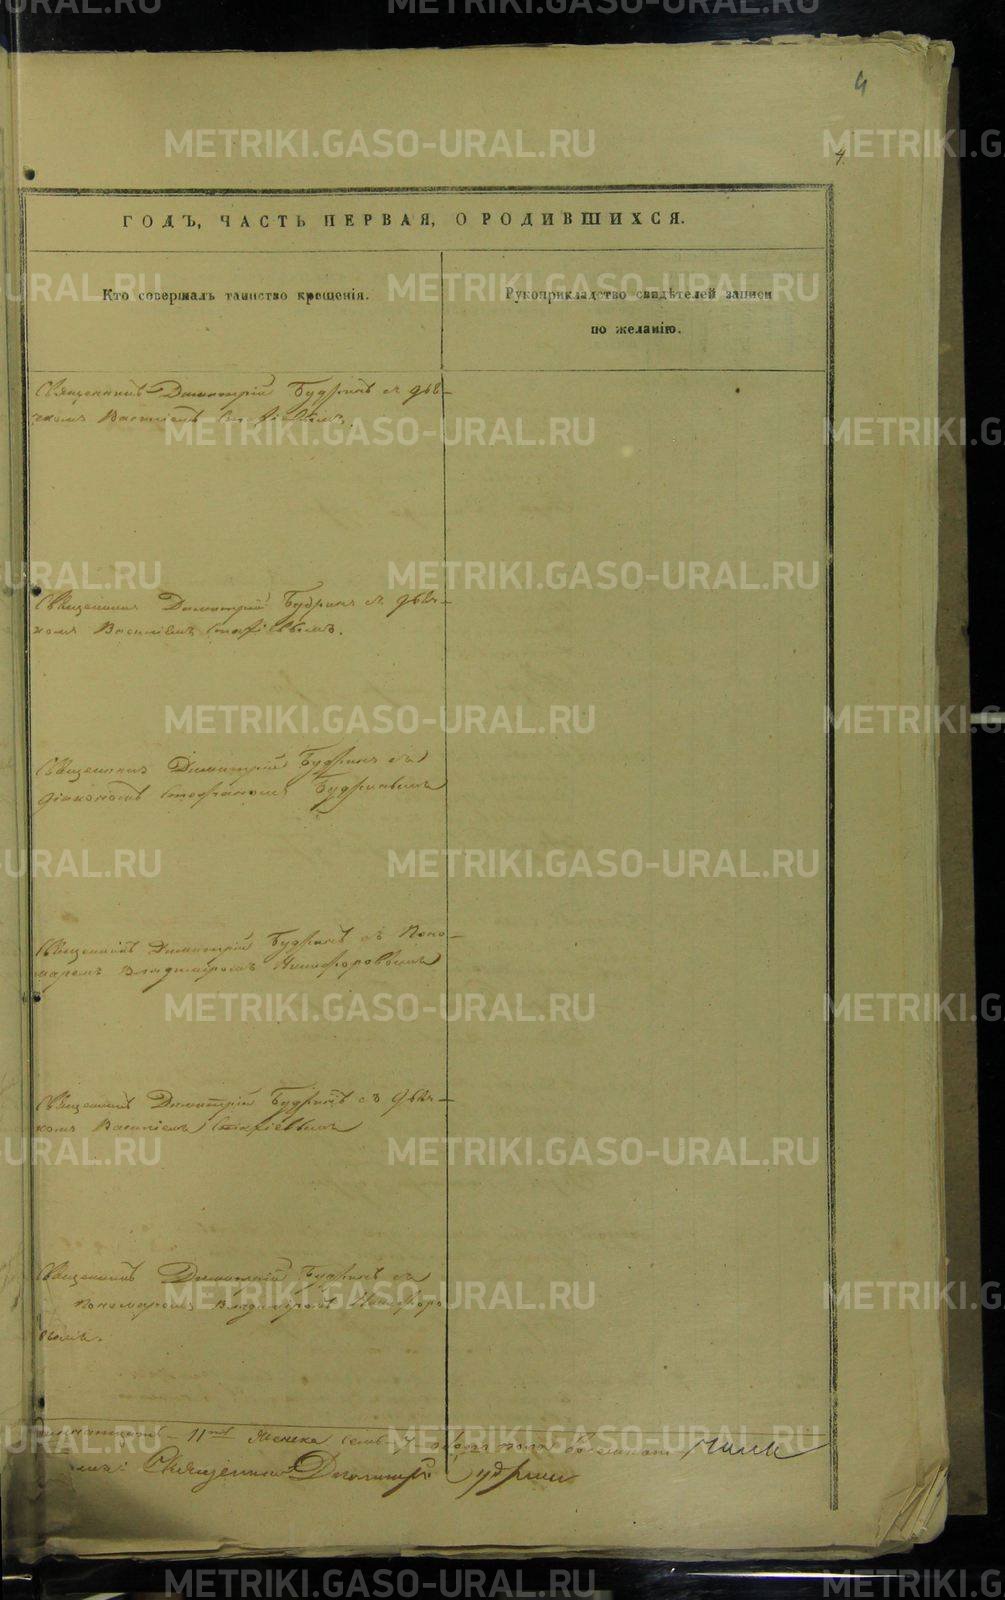 4
4.
ГОДЪ, ЧАСТЬ ПЕРВАЯ, О РОДИВШИХСЯ.
Кто совершалъ таинство крещенія.
Рукоприкладство свидѣтелей записи
по желанію.
Священникъ Димитрій Будринъ съ дьяч-
комъ Василіемъ
Священникъ Димитрій Будринъ съ дьяч-
комъ Василіемъ
Священникъ Димитрій Будринъ съ
діакономъ Стефаномъ Будринымъ
Священникъ Димитрій Будринъ съ Поно-
маремъ Владиміромъ Никифоровымъ
Священникъ Димитрій Будринъ съ дьяч-
комъ Василіемъ
Священникъ Димитрій Будринъ съ
Пономаремъ Владиміромъ Никифоро
вымъ.
11 Женска семь 7 обоего пола
Священникъ Димитрій Будринъ
METRIKI.GASO-URAL.RU